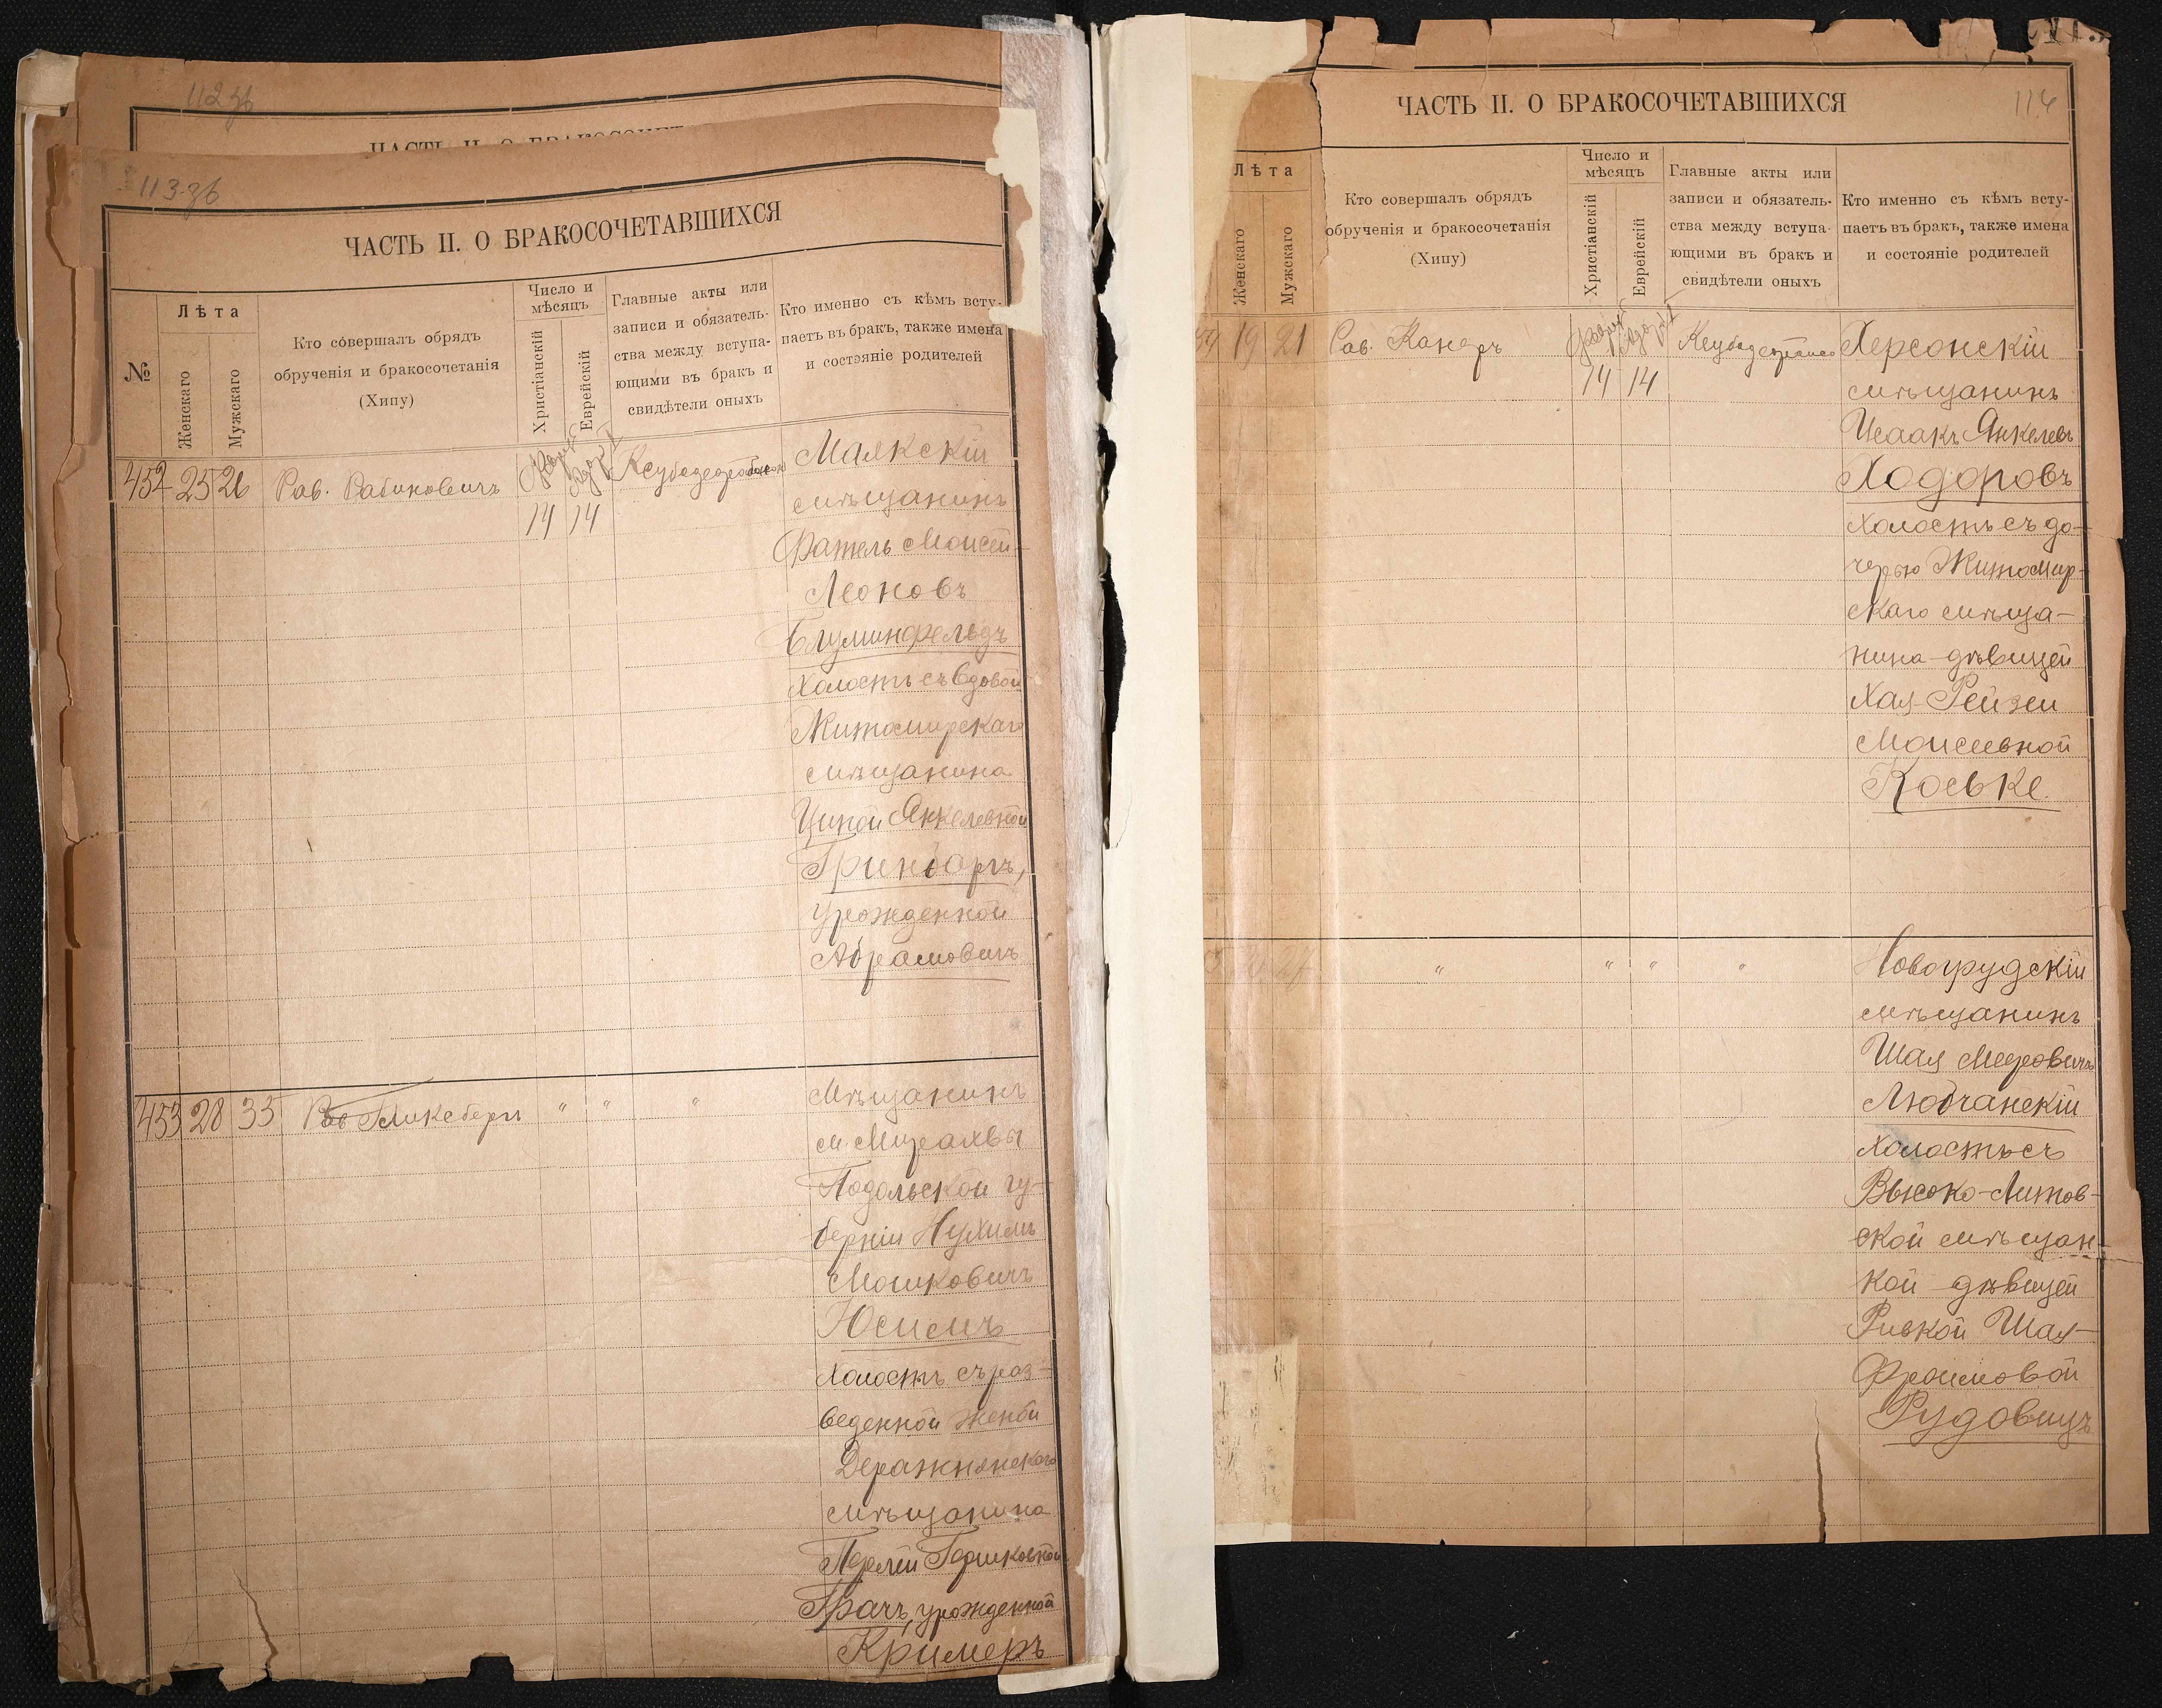 112 зв
ЧАСТЬ II. О БРАКОСОЧЕТ
113 зв
ЧАСТЬ II. О БРАКОСОЧЕТАВШИХСЯ
№
Лѣта
Женскаго
Мужскаго
Кто совершалъ обрядъ
обрученія и бракосочетанія
(Хипу)
Число и
мѣсяцъ
Христіанскій
Еврейскій
Главные акты или
записи и обязатель-
ства между вступа-
ющими въ бракъ и
свидѣтели оныхъ
Кто именно съ кѣмъ всту-
паетъ въ бракъ, также имена
и состояніе родителей
452 25 26 Рав. Рабиновичъ
14 14
Маякскій
мѣщанинъ
Фатель Моисей-
Леоновъ
Блуминфельдъ
холостъ съ вдовой
Житомирскаго
мѣщанина
Ципой Янкелевной
Гринбаргъ,
урожденной
Абрамовичъ
453 28 35 Рав Гликсбергъ " " "
Мѣщанинъ
м. Мурахвы
Подольской гу-
берніи Нухимъ
Мошковичъ
Юсимъ
холостъ съ раз-
веденной женой
Деражнянскаго
мѣщанина
Перлей Гершковной
Грачъ, урожденной
Кримеръ
ЧАСТЬ II. О БРАКОСОЧЕТАВШИХСЯ
114
Лѣта
Женскаго
Мужскаго
Кто совершалъ обрядъ
обрученія и бракосочетанія
(Хипу)
Число и
мѣсяцъ
Христіанскій
Еврейскій
Главные акты или
записи и обязатель-
ства между вступа-
ющими въ бракъ и
свидѣтели оныхъ
Кто именно съ кѣмъ всту-
паетъ въ бракъ, также имена
и состояніе родителей
19 21 Рав. Канеръ
14 14
Херсонскій
мѣщанинъ
Исаакъ Янкелевъ
Ходоровъ
холостъ съ до-
черью Житомир-
скаго мѣща-
нина дѣвицей
Хая-Рейзей
Моисеевной
Коськe.
" " " "
Новогрудскій
мѣщанинъ
Шая Меровичъ
Любчанскій
холостъ съ
Высоко-Литов-
ской мѣщан-
кой дѣвицей
Ривкой Шая-
Фроимовой
Рудовицъ